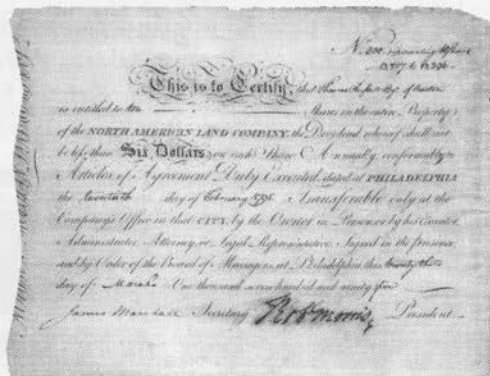 This is to Certify, that Thomas
is entitled to ten Shares in the entire Property
of the NORTH AMERICAN LAND COMPANY, the Dividend whereof shall not
be less than Six Dollars on each Share Annually, conformably to
Articles of Agreement Duly Executed, dated at PHILADELPHIA
the twentieth day of February 1795 Transferable only at the
Company's Office in that CITY, by the Owner in Person, or by his Executor
Administrator Attorney or Legal Representative. Signed in the presence
and by Order of the Board of Managers, at Philadelphia this
day of March One thousand seven hundred and ninety five
James Marshall Secretary Robt Morris President